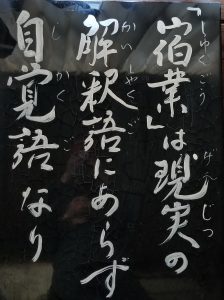 「宿業」は現実の
解釈語にあらず
自覚語なり
しゅくごう
げんじつ
かいしゃくご
じかくご